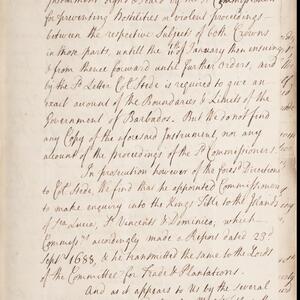 Instrument signed & Seal'd by the Sd. Commissioners
for preventing Hostilities & violent proceedings
between the respective Subjects of both Crowns
in those parts, until the 11th of January then ensuing
& from thence forward until further Orders, and
by the Sd. Letter Col. Stede is required to give an
exact account of the Boundaries & Limits of the
Government of Barbados. But We do not find
any Copy of the aforesaid Instrument, nor any
account of the proceedings of the Sd. Commissioners.
In prosecution however of the foresd. Directions
to Col. Stede, We find that he appointed Commissioners
to make enquiry into the Kings Title to the Islands
of Sta. Lucia, St. Vincents & Dominico, which
Commissrs. accordingly made a Report dated 23d.
Septr. 1688, & he transmitted the same to the Lords
of the Committee for Trade & Plantations.
And as it appears to Us by the several